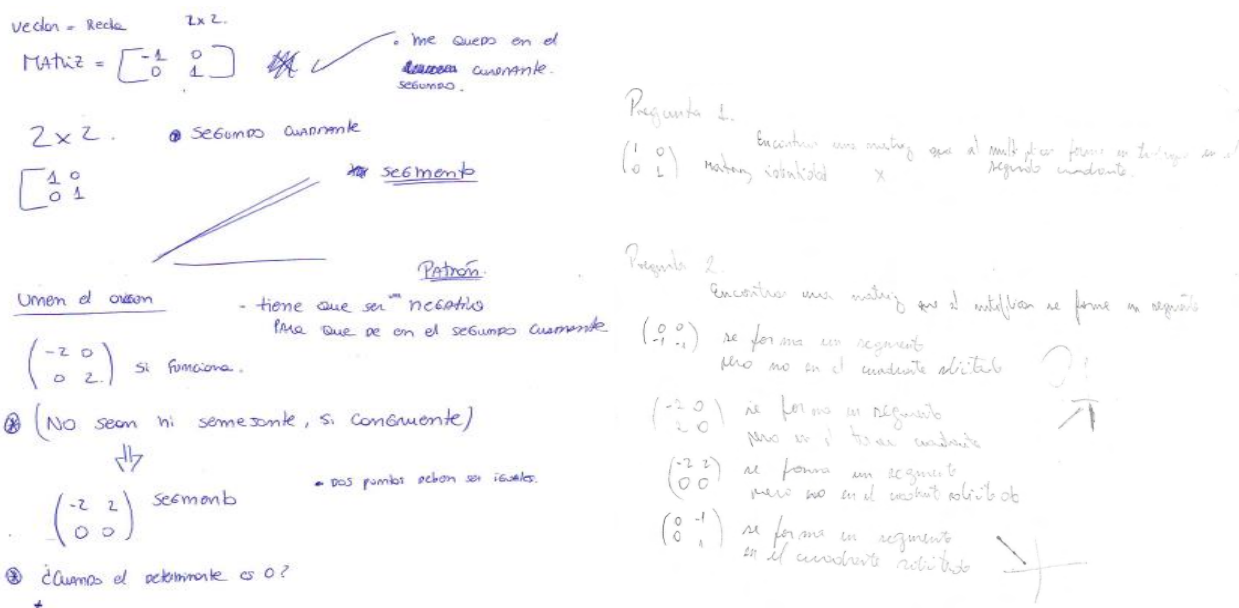 Vector = Recta 2x2.
MATRIZ = [-1 0
0 1]
• me QUEDO en el
CUADRANTE.
SEGUNDO.
2x2. • SEGUNDO CUADRANTE
[1 0
0 1]
SEGMENTO
PATRÓN.
Umen el
- tiene que ser un NEGATIVO
PARA QUE DE en el SEGUNDO CUADRANTE
(-2 0
0 2) Si FUNCIONA.
(NO SEAN NI SEMEJANTE, SI CONGRUENTE)
(-2 2
0 0) SEGMENTO
• DOS puntos deben ser iguales.
¿CUANDO el determinante es 0?
Pregunta 1.
Encontrar una matriz que al multiplicar forme un en el
segundo cuadrante.
(1 0
0 1) matriz identidad X
Pregunta 2.
Encontrar una matriz que al multiplicar se forme un segmento
(0 0
-1 -1) se forma un segmento
pero no en el cuadrante solicitado
?
(-2 0
2 0) se forma un segmento
pero en el cuadrante
(-2 2
0 0) se forma un segmento
pero no en el solicitado
(0 -1
0 1) se forma un segmento
en el cuadrante solicitado